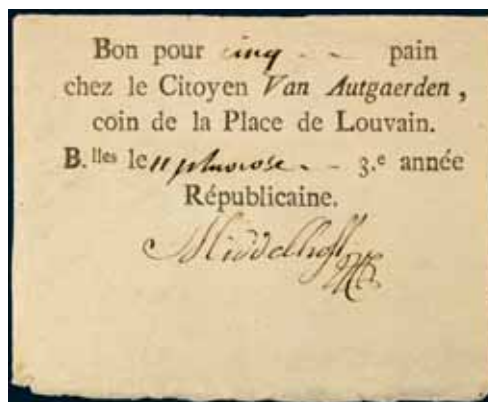 Bon pour cinq - - pain
chez le Citoyen Van Autgaerden,
coin de la Place de Louvain.
B.lles le 11 pluviose - - 3.e année
Républicaine.